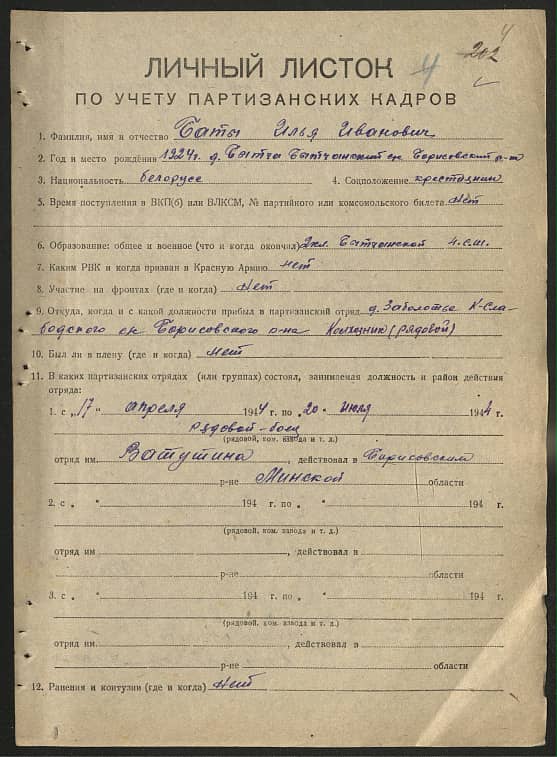 4
202
ЛИЧНЫЙ ЛИСТОК
ПО УЧЕТУ ПАРТИЗАНСКИХ КАДРОВ
1. Фамилия, имя и отчество Баты Илья Иванович
2. Год и место рождения 1924г. д. Бытча Бытчанский с/с Борисовский р-н
3. Национальность белорусс 4. Соцположение крестьянин
5. Время поступления в ВКП(б) или ВЛКСМ, № партийного или комсомольского билета нет
6. Образование: общее и военное (что и когда окончил) 2кл. Бытчанской н.с.ш.
7. Каким РВК и когда призван в Красную Армию нет
8. Участие на фронтах (где и когда) Нет
9. Откуда, когда и с какой должности прибыл в партизанский отряд д. Заболотье Н-Сла-
бодского с/с Борисовского р-на (рядовой)
10. Был ли в плену (где и когда) нет
11. В каких партизанских отрядах (или группах) состоял, занимаемая должность и район действия
отряда:
1. с „17" апреля 1944 г. по „20" июля 1944 г.
Рядовой-боец
(рядовой, ком. взвода и т. д.)
отряд им. Ватутина, действовал в Борисовским
р-не Минской области
2. с „ " 194 г. по „ " 194 г.
(рядовой, ком. взвода и т. д.)
отряд им , действовал в
р-не области
3. с „ " 194 г. по „ " 194 г.
(рядовой, ком. взвода и т. д.)
отряд им. , действовал в
р-не области
12. Ранения и контузии (где и когда) Нет